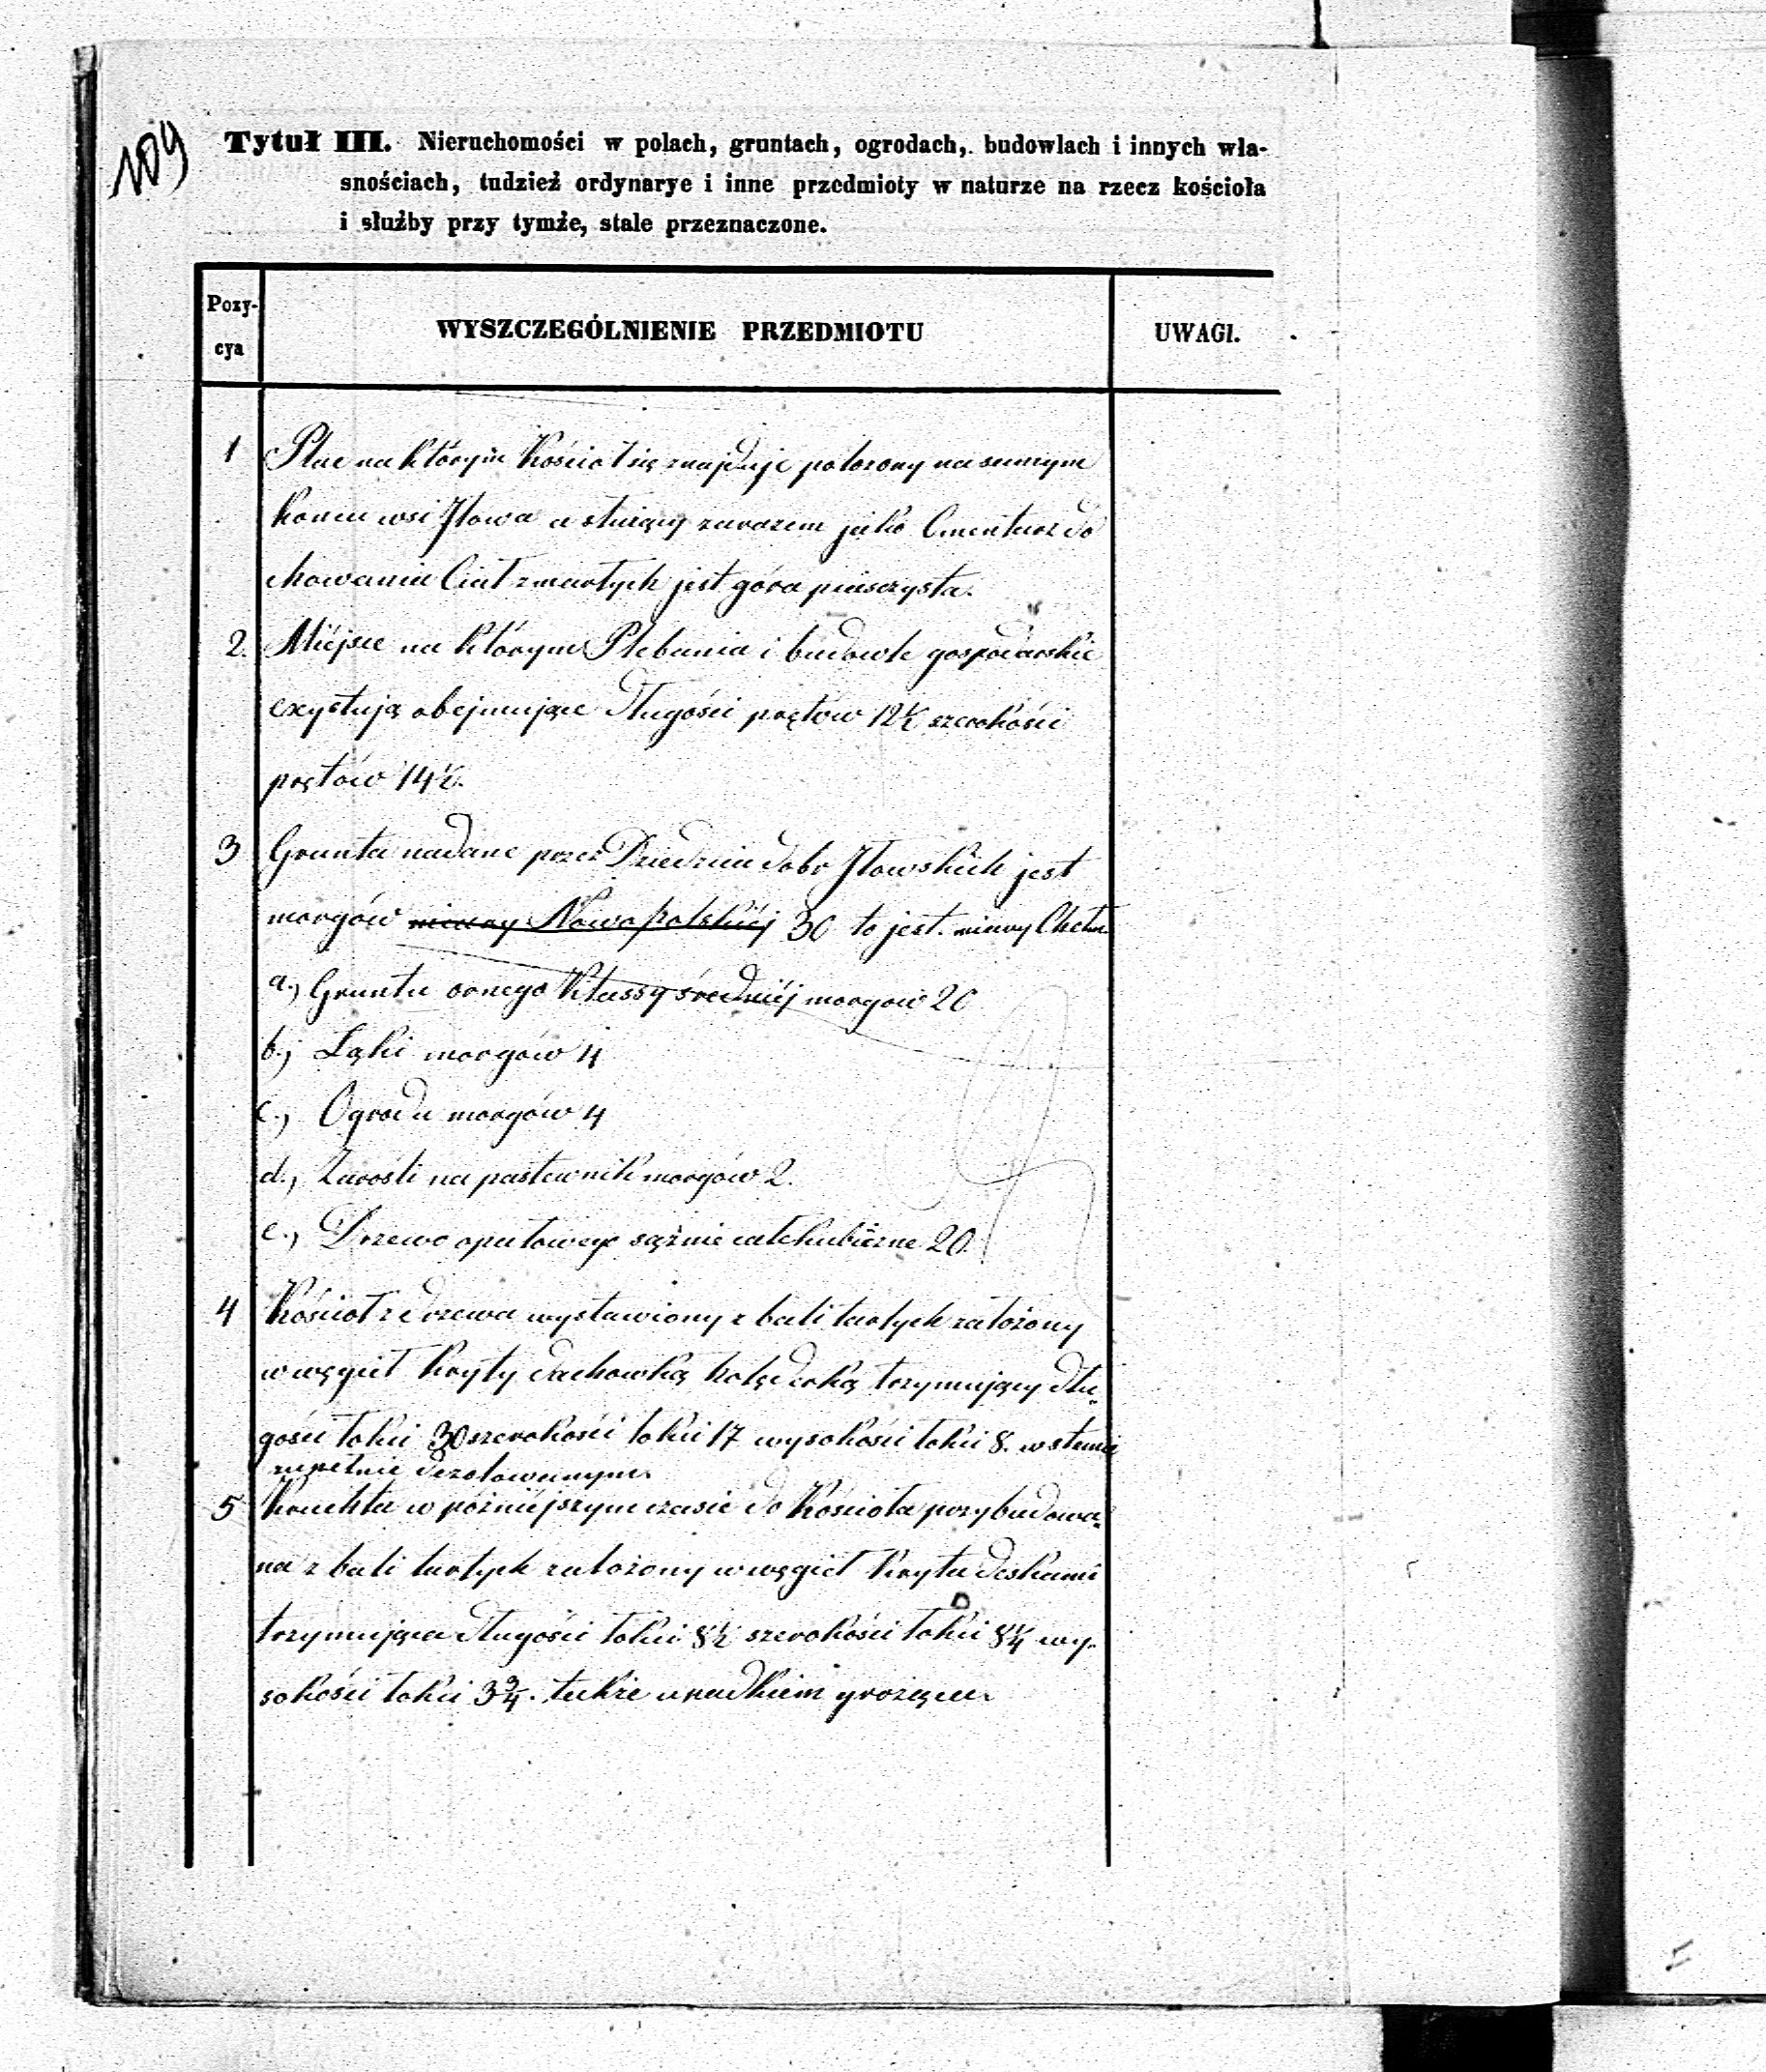 109
Tytuł III. Nieruchomości w polach, gruntach, ogrodach, budowlach i innych wła-
snościach, tudzież ordynarye i inne przedmioty w naturze na rzecz kościoła
i służby przy tymże, stale przeznaczone.
Pozy-
cya
WYSZCZEGÓLNIENIE PRZEDMIOTU
UWAGI.
1 Plac na którym Kościoł się znajduje położony na samym
końcu wsi Iłowa a służący zarazem jako Cmentarz do
chowania Ciał zmarłych jest góra piasczysta.
2. Miéjsce na którym Plebania i budowle gospodarskie
exystują obejmujące długości prętów 12½ szerokości
prętów 14½.
3 Grunta nadane przez Dziedzica dobr Iłowskich jest
morgów miary Nowopolskiéj 30 to jest. miary Chełm.
a.) Gruntu ornego Klassy średniéj morgów 20
b.) Łąki morgów 4
c.) Ogrodu morgów 4
d.) Zarośli na pastewnik morgów 2.
e.) Drzewo opałowego sążnie całkubiczne 20.
4 Kościoł z drzewa wystawiony z bali tartych założony
w węgieł kryty dachówką holęderką trzymujący dłu-
gości łokci 30 szerokości łokci 17 wysokości łokci 8. w stanie
zupełnie dezolowanym.
5 Kruchta w późniéjszym czasie do Kościoła przybudowa-
na z bali tartych założony w węgieł kryta deskami
trzymująca długości łokci 8½ szerokości łokci 8¼ wy-
sokości łokci 3¾. także upadkiem grożąca.